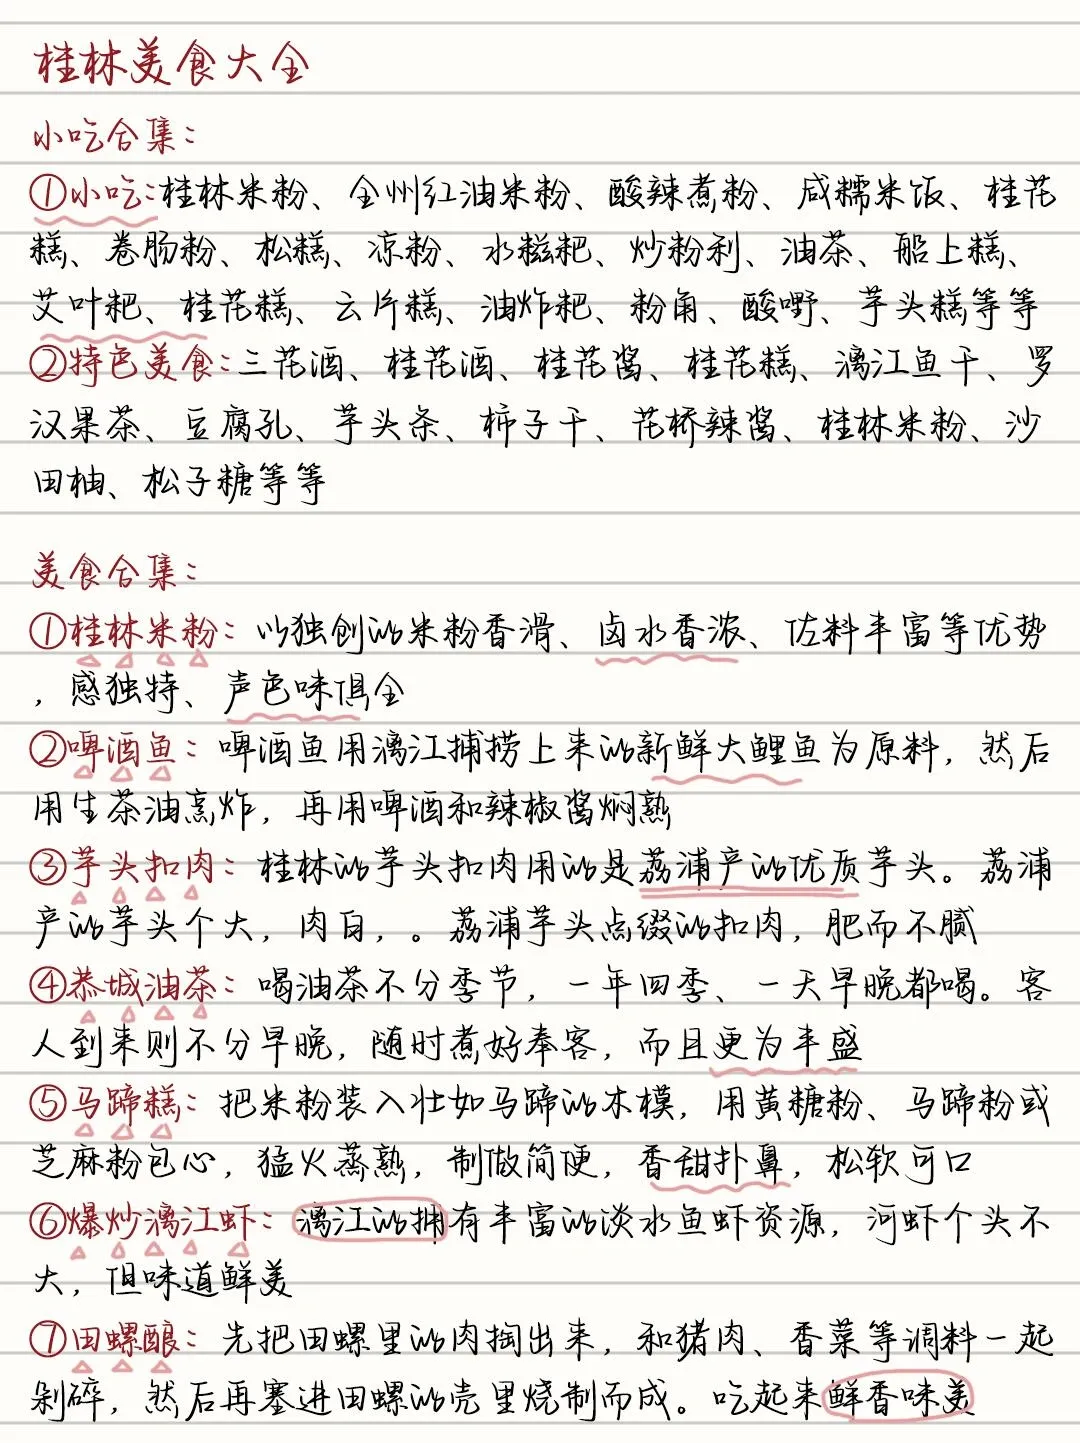 桂林美食大全
小吃合集:
①小吃:桂林米粉、全州红油米粉、酸辣煮粉、咸糯米饭、桂花
糕、卷肠粉、松糕、凉粉、水糍粑、炒粉利、油茶、船上糕、
艾叶粑、桂花糕、云片糕、油炸粑、粉角、酸嘢、芋头糕等等
②特色美食:三花酒、桂花酒、桂花酱、桂花糕、漓江鱼干、罗
汉果茶、豆腐乳、芋头条、柿子干、花桥辣酱、桂林米粉、沙
田柚、松子糖等等
美食合集:
①桂林米粉:以独创的米粉香滑、卤水香浓、佐料丰富等优势
,感独特、声色味俱全
②啤酒鱼:啤酒鱼用漓江捕捞上来的新鲜大鲤鱼为原料,然后
用生茶油烹炸,再用啤酒和辣椒酱焖熟
③芋头扣肉:桂林的芋头扣肉用的是荔浦产的优质芋头。荔浦
产的芋头个大,肉白,。荔浦芋头点缀的扣肉,肥而不腻
④恭城油茶:喝油茶不分季节,一年四季、一天早晚都喝。客
人到来则不分早晚,随时煮好奉客,而且更为丰盛
⑤马蹄糕:把米粉装入壮如马蹄的木模,用黄糖粉、马蹄粉或
芝麻粉包心,猛火蒸熟,制做简便,香甜扑鼻,松软可口
⑥爆炒漓江虾:漓江的拥有丰富的淡水鱼虾资源,河虾个头不
大,但味道鲜美
⑦田螺酿:先把田螺里的肉掏出来,和猪肉、香菜等调料一起
剁碎,然后再塞进田螺的壳里烧制而成。吃起来鲜香味美